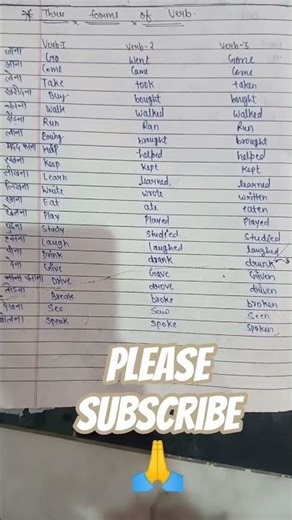 * Three forms of Verb.
Verb-I Verb-2 Verb-3
जाना Go Went Gone
आना Come Came Come
लेना Take took taken
खरीदना Buy bought bought
Walk Walked Walked
दौड़ना Run Ran Run
लाना Bring brought brought
मदद करना Help helped helped
रखना Keep Kept Kept
सीखना Learn learned learned
लिखना Wrote wrote written
खाना Eat ate eaten
खेलना Play Played Played
पढ़ना Study Studied Studied
हँसना Laugh laughed laughed
पीना Drink drank drunk
देना Give Gave Given
चलाना Drive drove driven
तोड़ना Break broke broken
देखना See Saw Seen
बोलना Speak spoke spoken
PLEASE
SUBSCRIBE
🙏